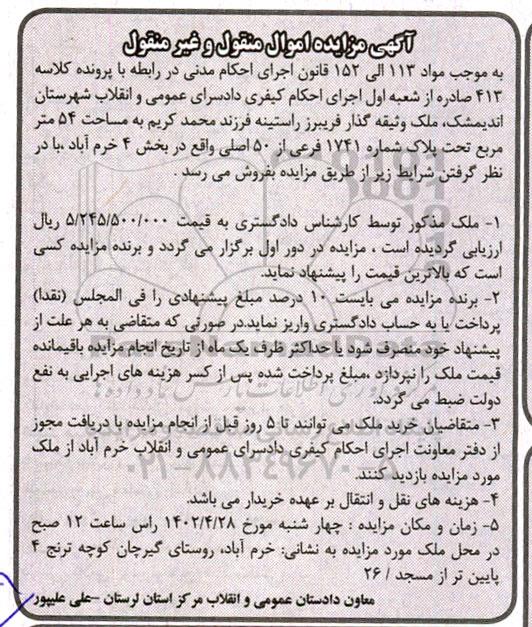 آگهی مزایده اموال منقول و غیر منقول
به موجب مواد ۱۱۳ الی ۱۵۲ قانون اجرای احکام مدنی در رابطه با پرونده کلاسه
۴۱۳ صادره از شعبه اول اجرای احکام کیفری دادسرای عمومی و انقلاب شهرستان
اندیمشک، ملک وثیقه گذار فریبرز راستینه فرزند محمد کریم به مساحت ۵۴ متر
مربع تحت پلاک شماره ۱۷۴۱ فرعی از ۵۰ اصلی واقع در بخش ۴ خرم آباد ،با در
نظر گرفتن شرایط زیر از طریق مزایده بفروش می رسد .
۱- ملک مذکور توسط کارشناس دادگستری به قیمت ۵/۲۴۵/۵۰۰/۰۰۰ ریال
ارزیابی گردیده است ، مزایده در دور اول برگزار می گردد و برنده مزایده کسی
است که بالاترین قیمت را پیشنهاد نماید.
۲- برنده مزایده می بایست ۱۰ درصد مبلغ پیشنهادی را فی المجلس (نقدا)
پرداخت یا به حساب دادگستری واریز نماید.در صورتی که متقاضی به هر علت از
پیشنهاد خود منصرف شود یا حداکثر ظرف یک ماه از تاریخ انجام مزایده باقیمانده
قیمت ملک را نپردازد ،مبلغ پرداخت شده پس از کسر هزینه های اجرایی به نفع
دولت ضبط می گردد.
۳- متقاضیان خرید ملک می توانند تا ۵ روز قبل از انجام مزایده با دریافت مجوز
از دفتر معاونت اجرای احکام کیفری دادسرای عمومی و انقلاب خرم آباد از ملک
مورد مزایده بازدید کنند.
۴- هزینه های نقل و انتقال بر عهده خریدار می باشد.
۵- زمان و مکان مزایده : چهار شنبه مورخ ۱۴۰۲/۴/۲۸ راس ساعت ۱۲ صبح
در محل ملک مورد مزایده به نشانی: خرم آباد، روستای گیرچان کوچه ترنج ۴
پایین تر از مسجد / ۲۶
معاون دادستان عمومی و انقلاب مرکز استان لرستان –علی علیپور
۰۲۱-۸۸۳۴۹۶۷۰-۵